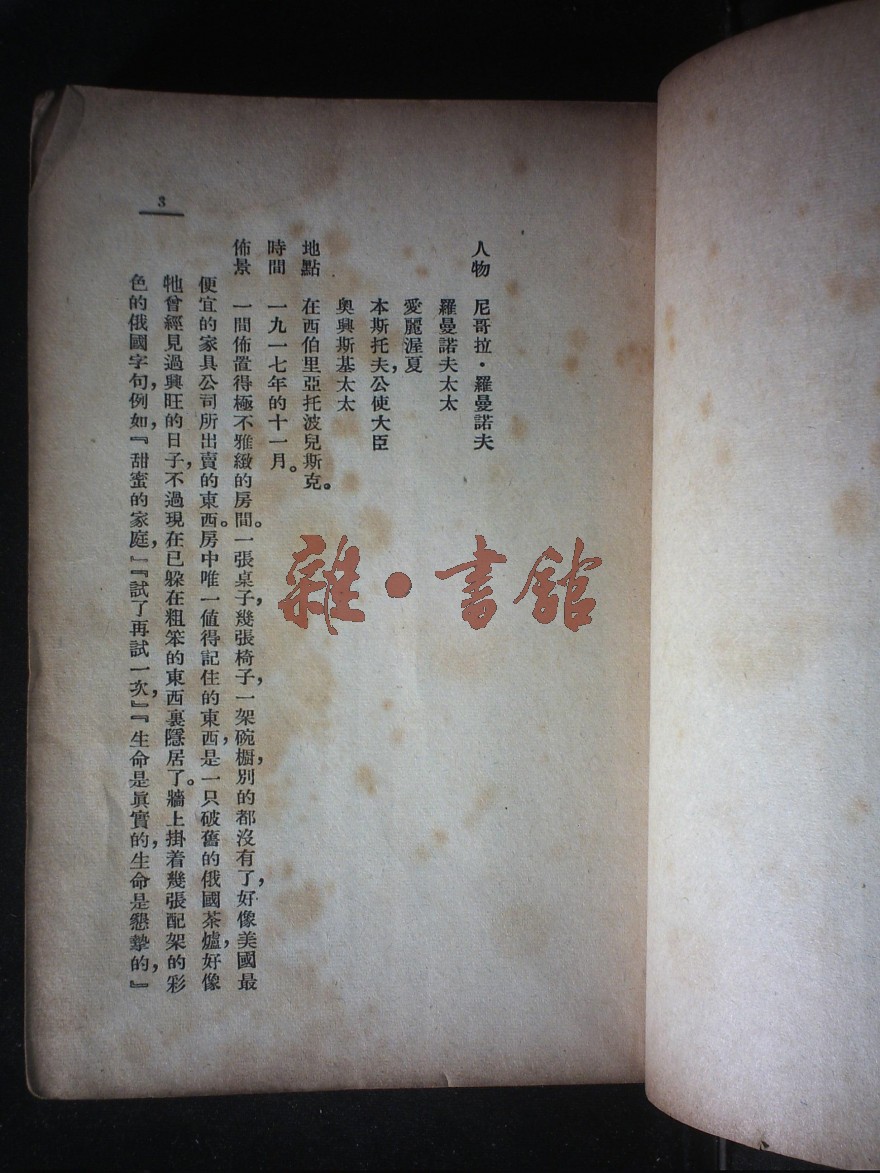 3
人物　尼哥拉・羅曼諾夫
羅曼諾夫太太
愛麗渥夏
本斯托夫，公使大臣
奧興斯基太太
地點　在西伯里亞托波兒斯克。
時間　一九一七年的十一月。
佈景　一間佈置得極不雅緻的房間。一張桌子，幾張椅子，一架碗櫥，別的都沒有了，好像美國最
便宜的家具公司所出賣的東西。房中唯一值得記住的東西，是一只破舊的俄國茶爐，好像
牠曾經見過興旺的日子，不過現在已躲在粗笨的東西裏隱居了。牆上掛着幾張配架的彩
色的俄國字句，例如，『甜蜜的家庭，』『試了再試一次，』『生命是眞實的，生命是懇摯的，』
雜・書館